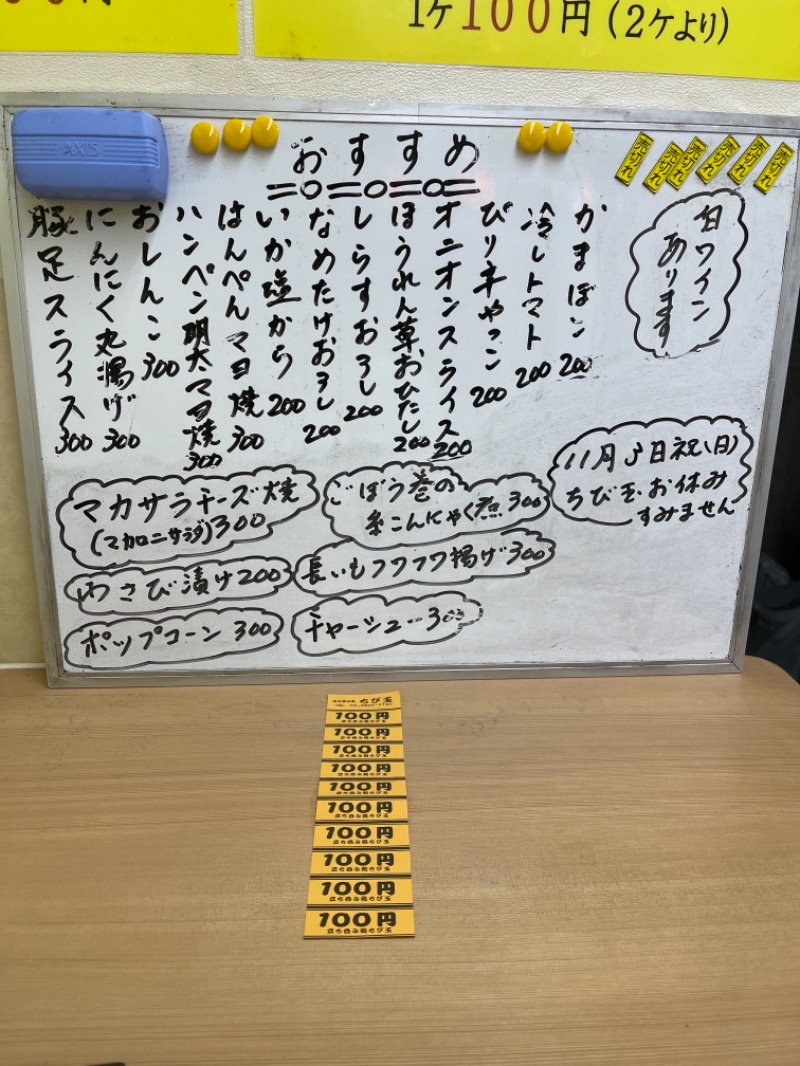 1ケ100円(2ケより)
AXIS
おすすめ
売切れ
売切れ
売切れ
売切れ
売切れ
売切れ
白ワイン
あります
かまぼこ 200
冷しトマト 200
ぴり辛やっこ 200
オニオンスライス 200
ほうれん草おひたし 200
しらすおろし 200
なめたけおろし 200
いか塩から 200
はんぺんマヨ焼 300
ハンペン明太マヨ焼 300
おしんこ 300
にんにく丸揚げ 300
豚足スライス 300
11月3日祝(日)
ちび玉お休み
すみません
マカサラチーズ焼
(マカロニサラダ)300
ごぼう巻の
糸こんにゃく煮 300
わさび漬け200
長いもフワフワ揚げ300
ポップコーン 300
チャーシュー300
ちび玉
100円
100円
100円
100円
100円
100円
100円
100円
100円
立ち呑み処ちび玉
100円
立ち呑み処ちび玉